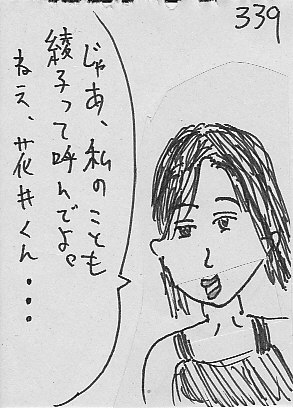 339
じゃあ、私のことも
綾子って呼んでよ。
ねえ、花井くん・・・